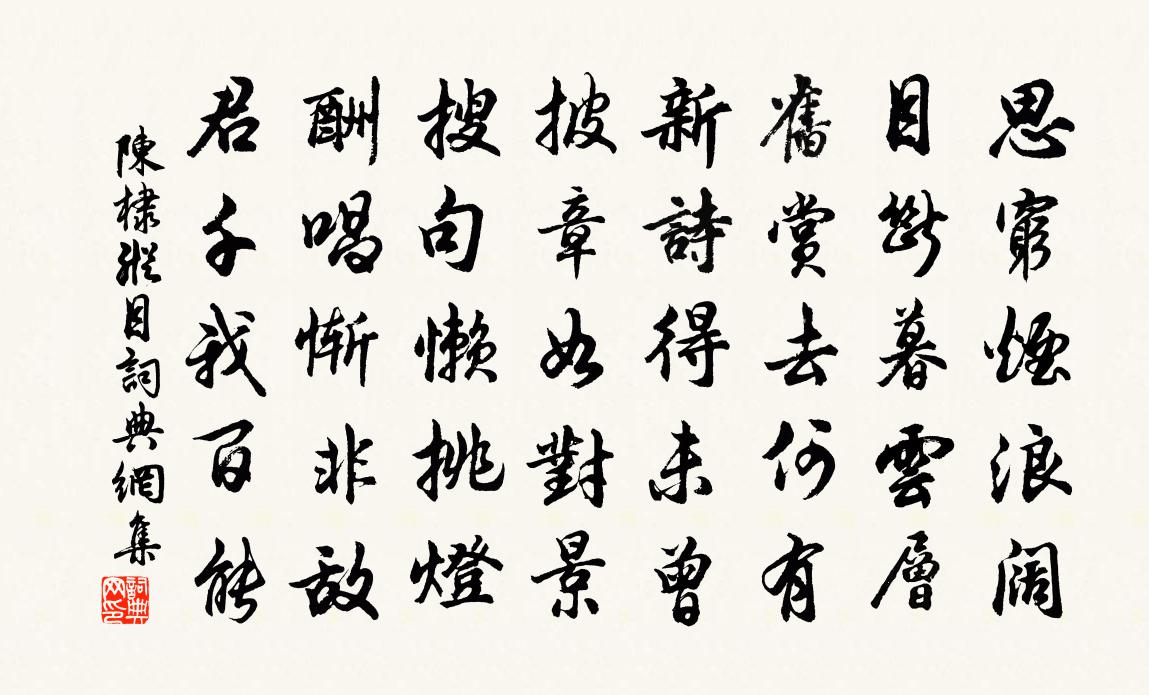 思窮煙浪闊
目斷暮雲層
舊賞去何有
新詩得未曾
披章如對景
搜句懶挑燈
酬唱慚非敵
君千我百能
陳棣縱目詞典網集
詞典網印